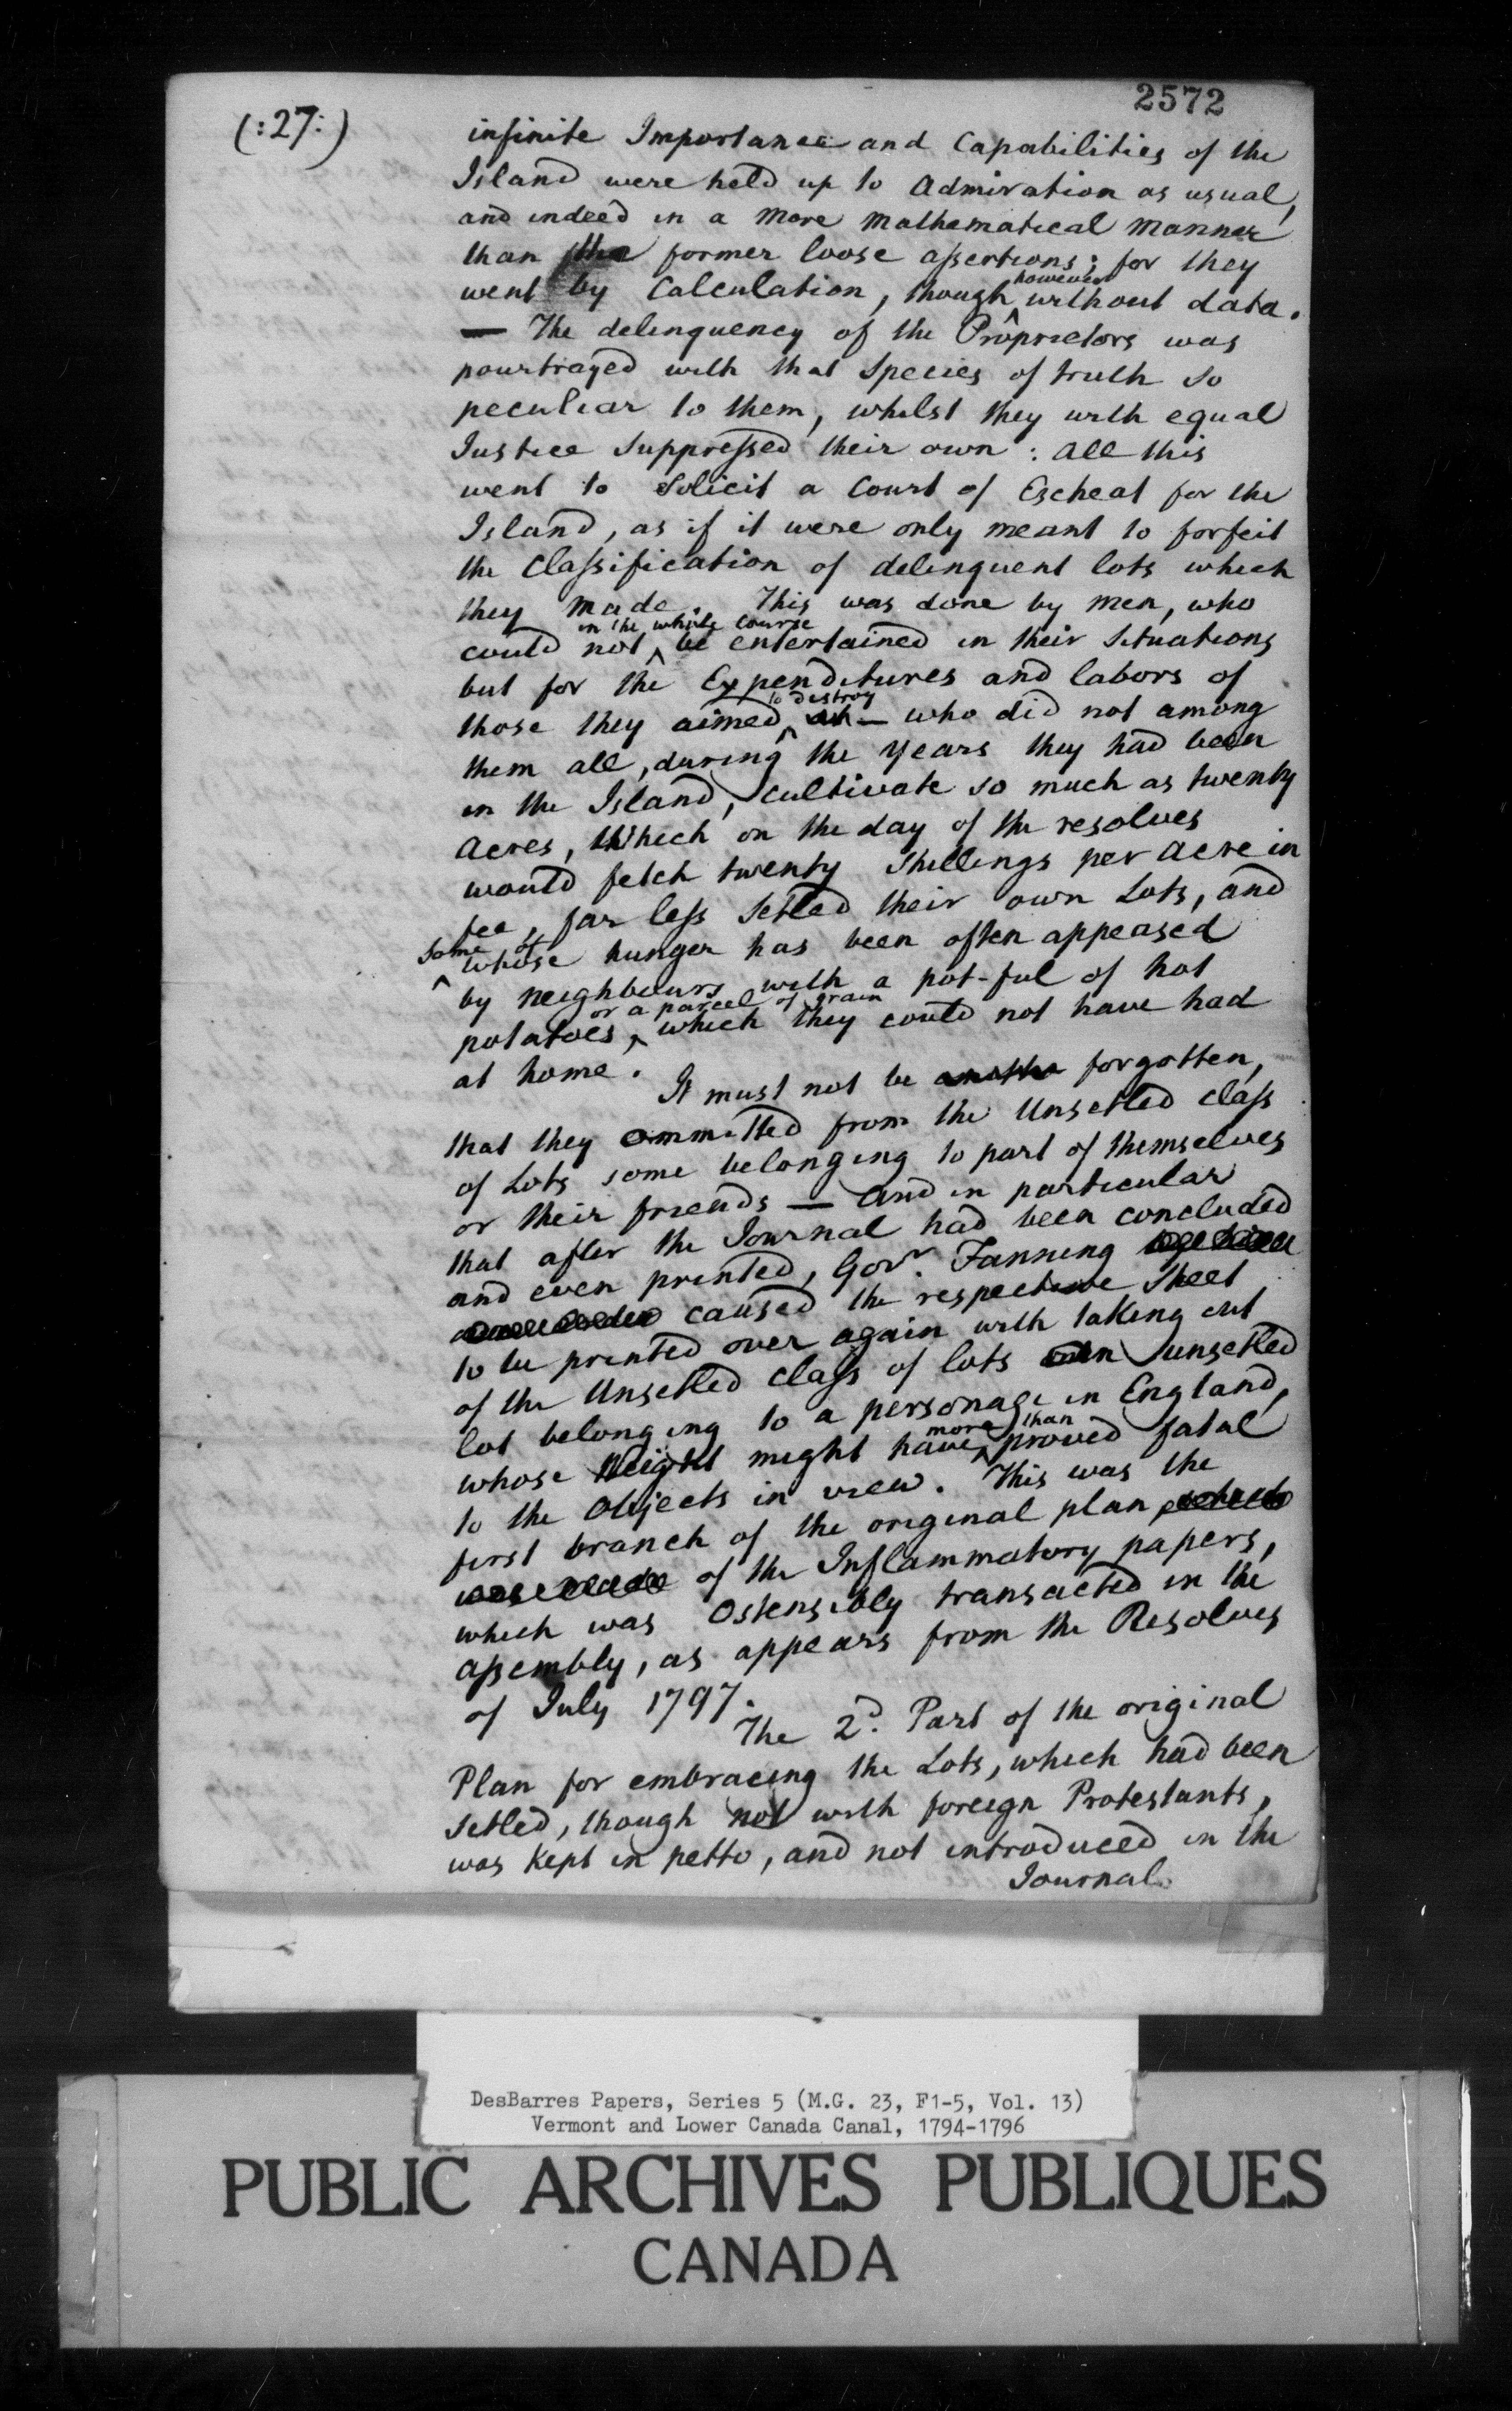 2572
(:27:)
infinite Importance and Capabilities of the
Island were held up to Admiration as usual,
and indeed in a More Mathematical Manner
than the former loose assertions; for they
went by Calculation, though however without data.
— The delinquency of the Proprietors was
pourtrayed with that Species of truth so
peculiar to them, whilst they with equal
Justice suppressed their own : all this
went to Solicit a Court of Escheat for the
Island, as if it were only meant to forfeit
the Classification of delinquent lots which
they made. This was done by Men, who
could not in the whole Course be entertained in their Situations
but for the Expenditures and labors of
those they aimed to destroy at — who did not among
them all, during the Years they had been
in the Island, cultivate so much as twenty
Acres, Which on the day of the resolves
would fetch twenty Shillings per Acre in
fee, far less Setled their own Lots, and
Some of whose hunger has been often appeased
by neighbours with a pot-ful of hot
potatoes, or a parcel of grain which they could not have had
at home.
It must not be forgotten,
that they ommitted from the Unsetled Class
of Lots some belonging to part of themselves
or their friends — And in particular
that after the Journal had been concluded
and even printed, Govr. Fanning
caused the respective Sheet
to be printed over again with taking out
of the Unsetled Class of lots an unsetled
lot belonging to a personage in England,
whose Weight might have more than proved fatal
to the Objects in view. This was the
first branch of the original plan
of the Inflammatory papers,
which was Ostensibly transacted in the
assembly, as appears from the Resolves
of July 1797.
The 2d. Part of the original
Plan for embracing the Lots, which had been
Setled, though not with foreign Protestants,
was Kept in petto, and not introduced in the
Journal
DesBarres Papers, Series 5 (M.G. 23, F1-5, Vol. 13)
Vermont and Lower Canada Canal, 1794-1796
PUBLIC ARCHIVES PUBLIQUES
CANADA